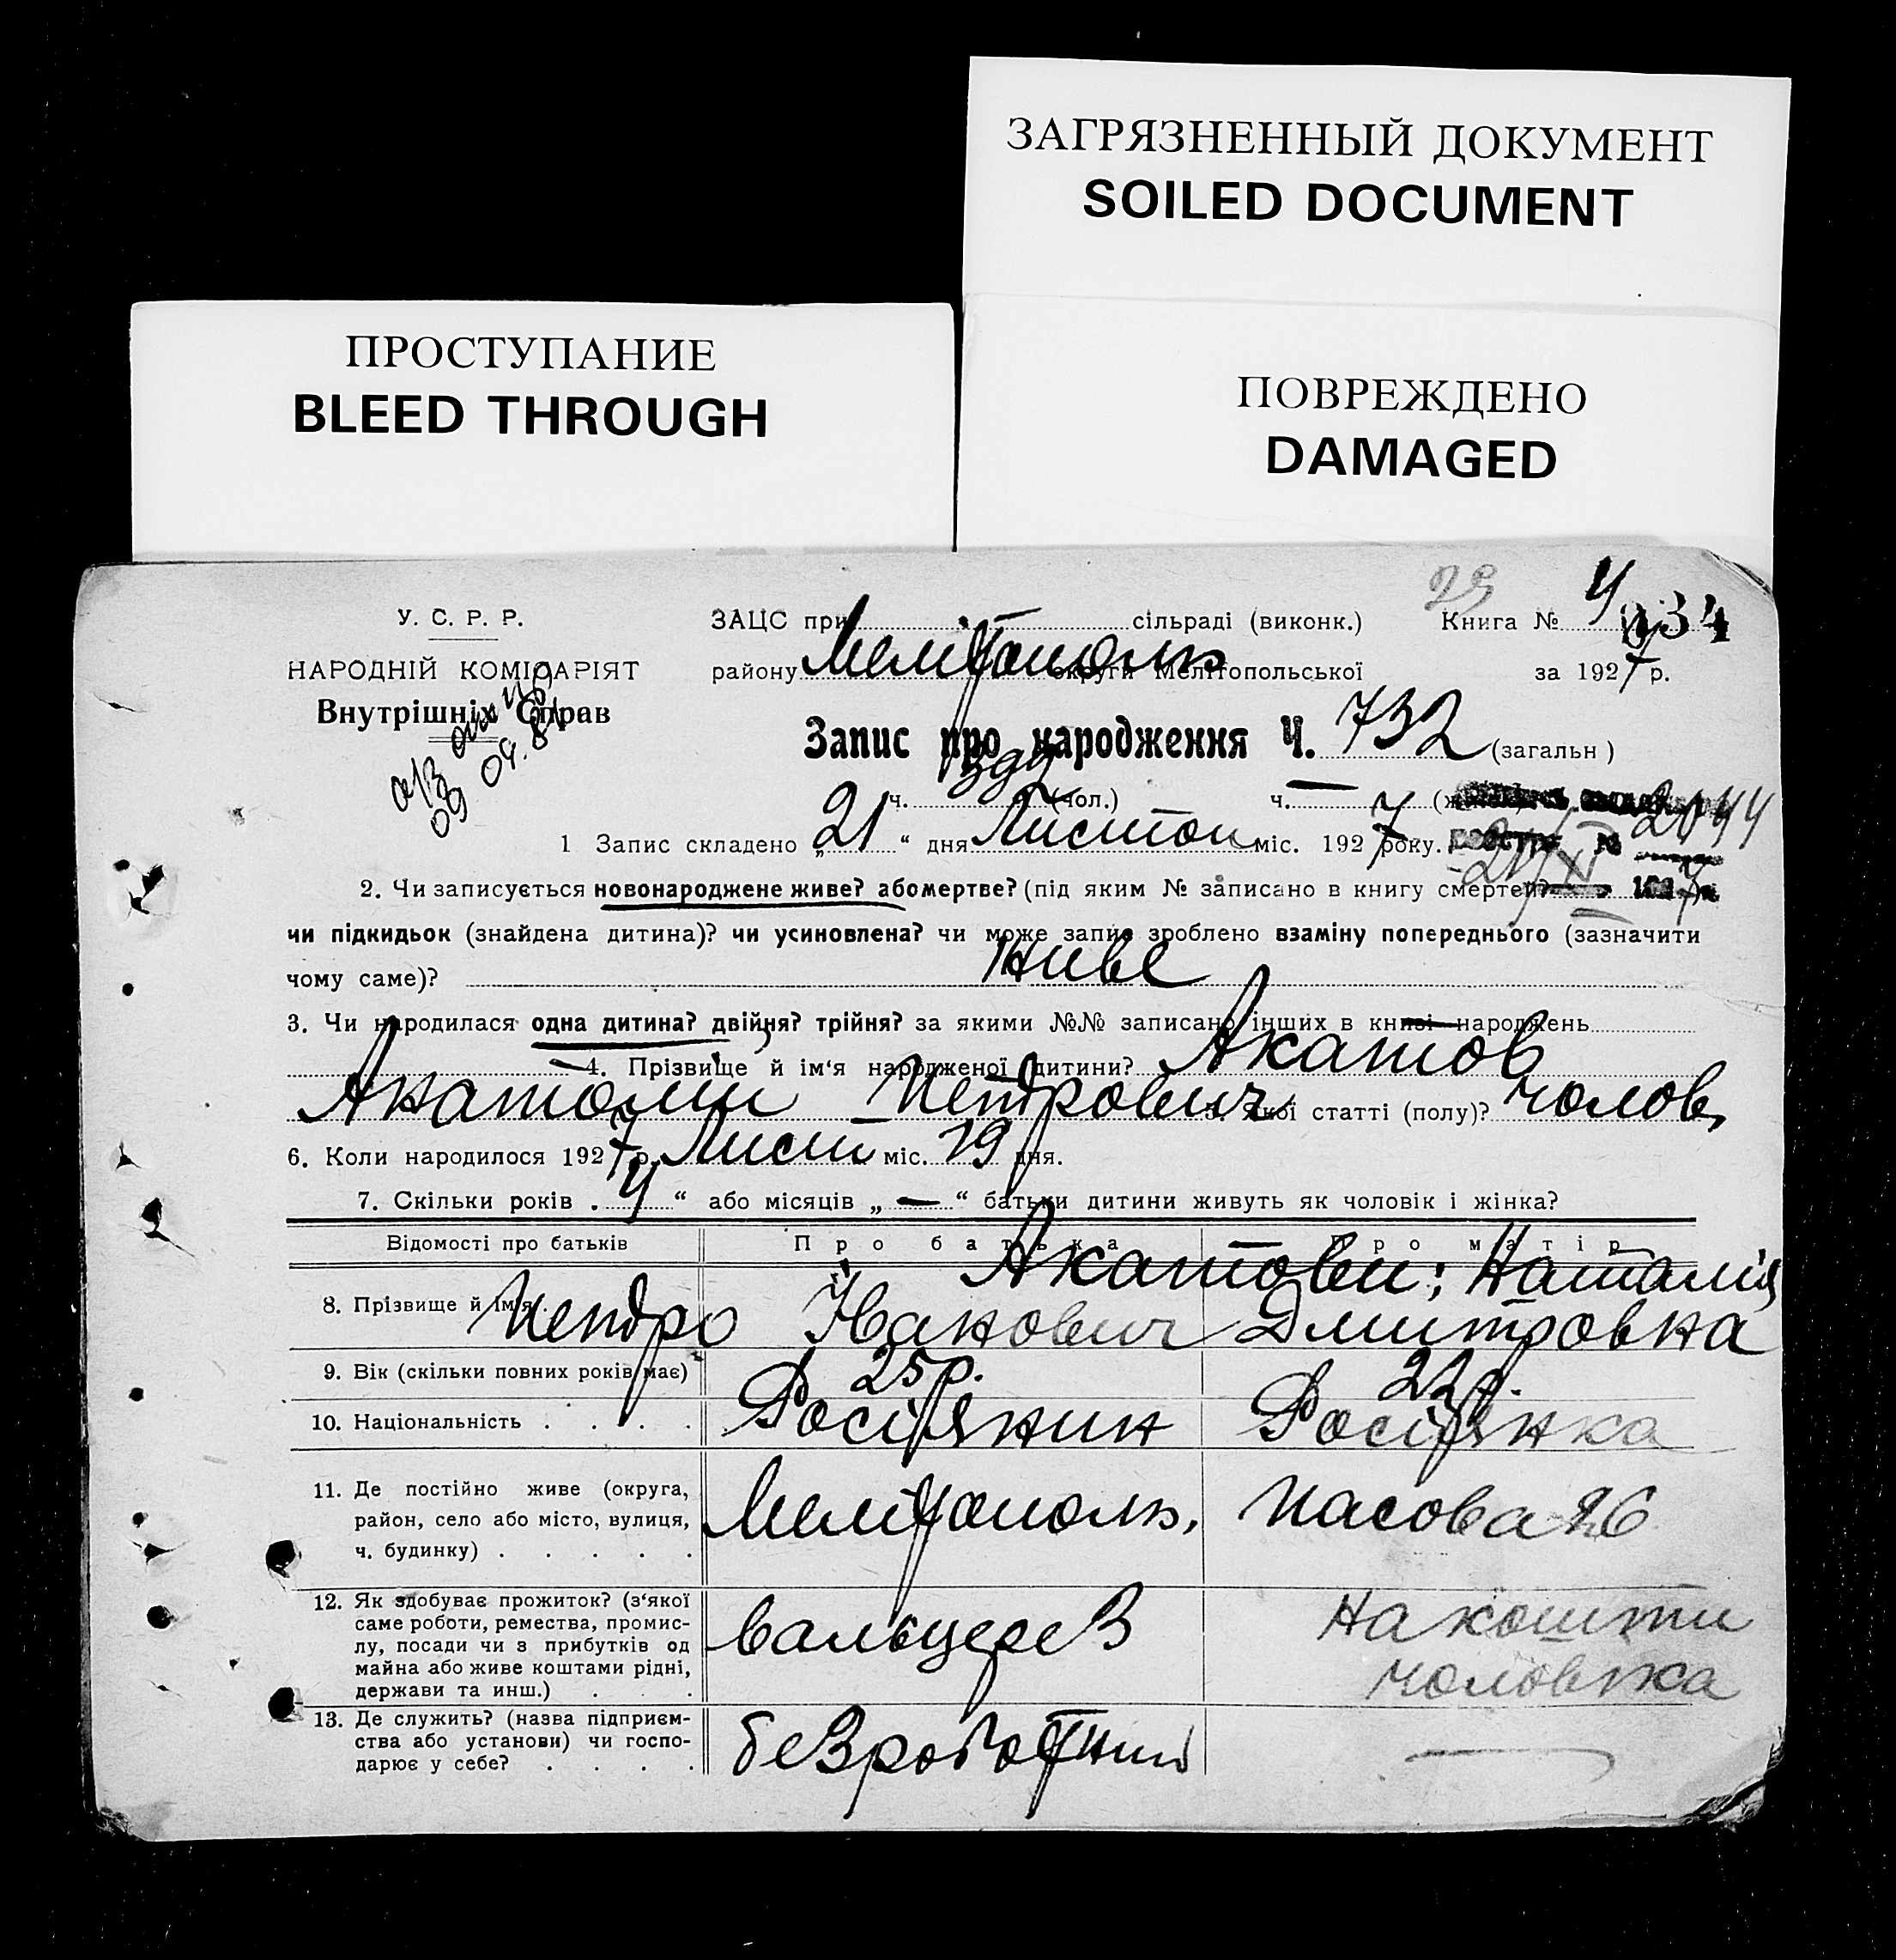 ЗАГРЯЗНЕННЫЙ ДОКУМЕНТ
SOILED DOCUMENT
ПРОСТУПАНИЕ
BLEED THROUGH
ПОВРЕЖДЕНО
DAMAGED
29
У. С. Р. Р.
НАРОДНІЙ КОМІСАРІЯТ
Внутрішніх Справ
ЗАЦС при сільраді (виконк.) Книга № 4
району Мелітополь округи Мелітопольської за 1927 р.
Запис про народження Ч. 732 (загальн)
ч. 392 (чол.) ч. —
2044
1 Запис складено „21“ дня Листоп міс. 1927 року. №
2. Чи записується новонароджене живе? або мертве? (під яким № записано в книгу смертей?
чи підкидьок (знайдена дитина)? чи усиновлена? чи може запис зроблено взаміну попереднього (зазначити
чому саме)? Живе
3. Чи народилася одна дитина? двійня? трійня? за якими №№ записано інших в книзі народжень —
— 4. Прізвище й ім‘я народженої дитини? Акатов
Анатолий Петрович 5. Якої статті (полу)? чолов.
6. Коли народилося 1927 р. Лист міс. 19 дня.
7. Скільки років „4“ або місяців „—“ батьки дитини живуть як чоловік і жінка?
Відомості про батьків Про батька Про матір
Акатови: Наталія
8. Прізвище й ім‘я Петро Іванович Дмитровна
9. Вік (скільки повних років має) 25р. 22р.
10. Національність . . . . Росіянин Росіянка
11. Де постійно живе (округа,
район, село або місто, вулиця,
ч. будинку) . . . . .
Мелітополь,
12. Як здобуває прожиток? (з‘якої
саме роботи, ремества, промис-
лу, посади чи з прибутків од
майна або живе коштами рідні,
держави та инш.) . . .
вальцерез
На кошти
чоловіка
13. Де служить? (назва підприєм-
ства або установи) чи госпо-
дарює у себе? . . . .
безроботний —